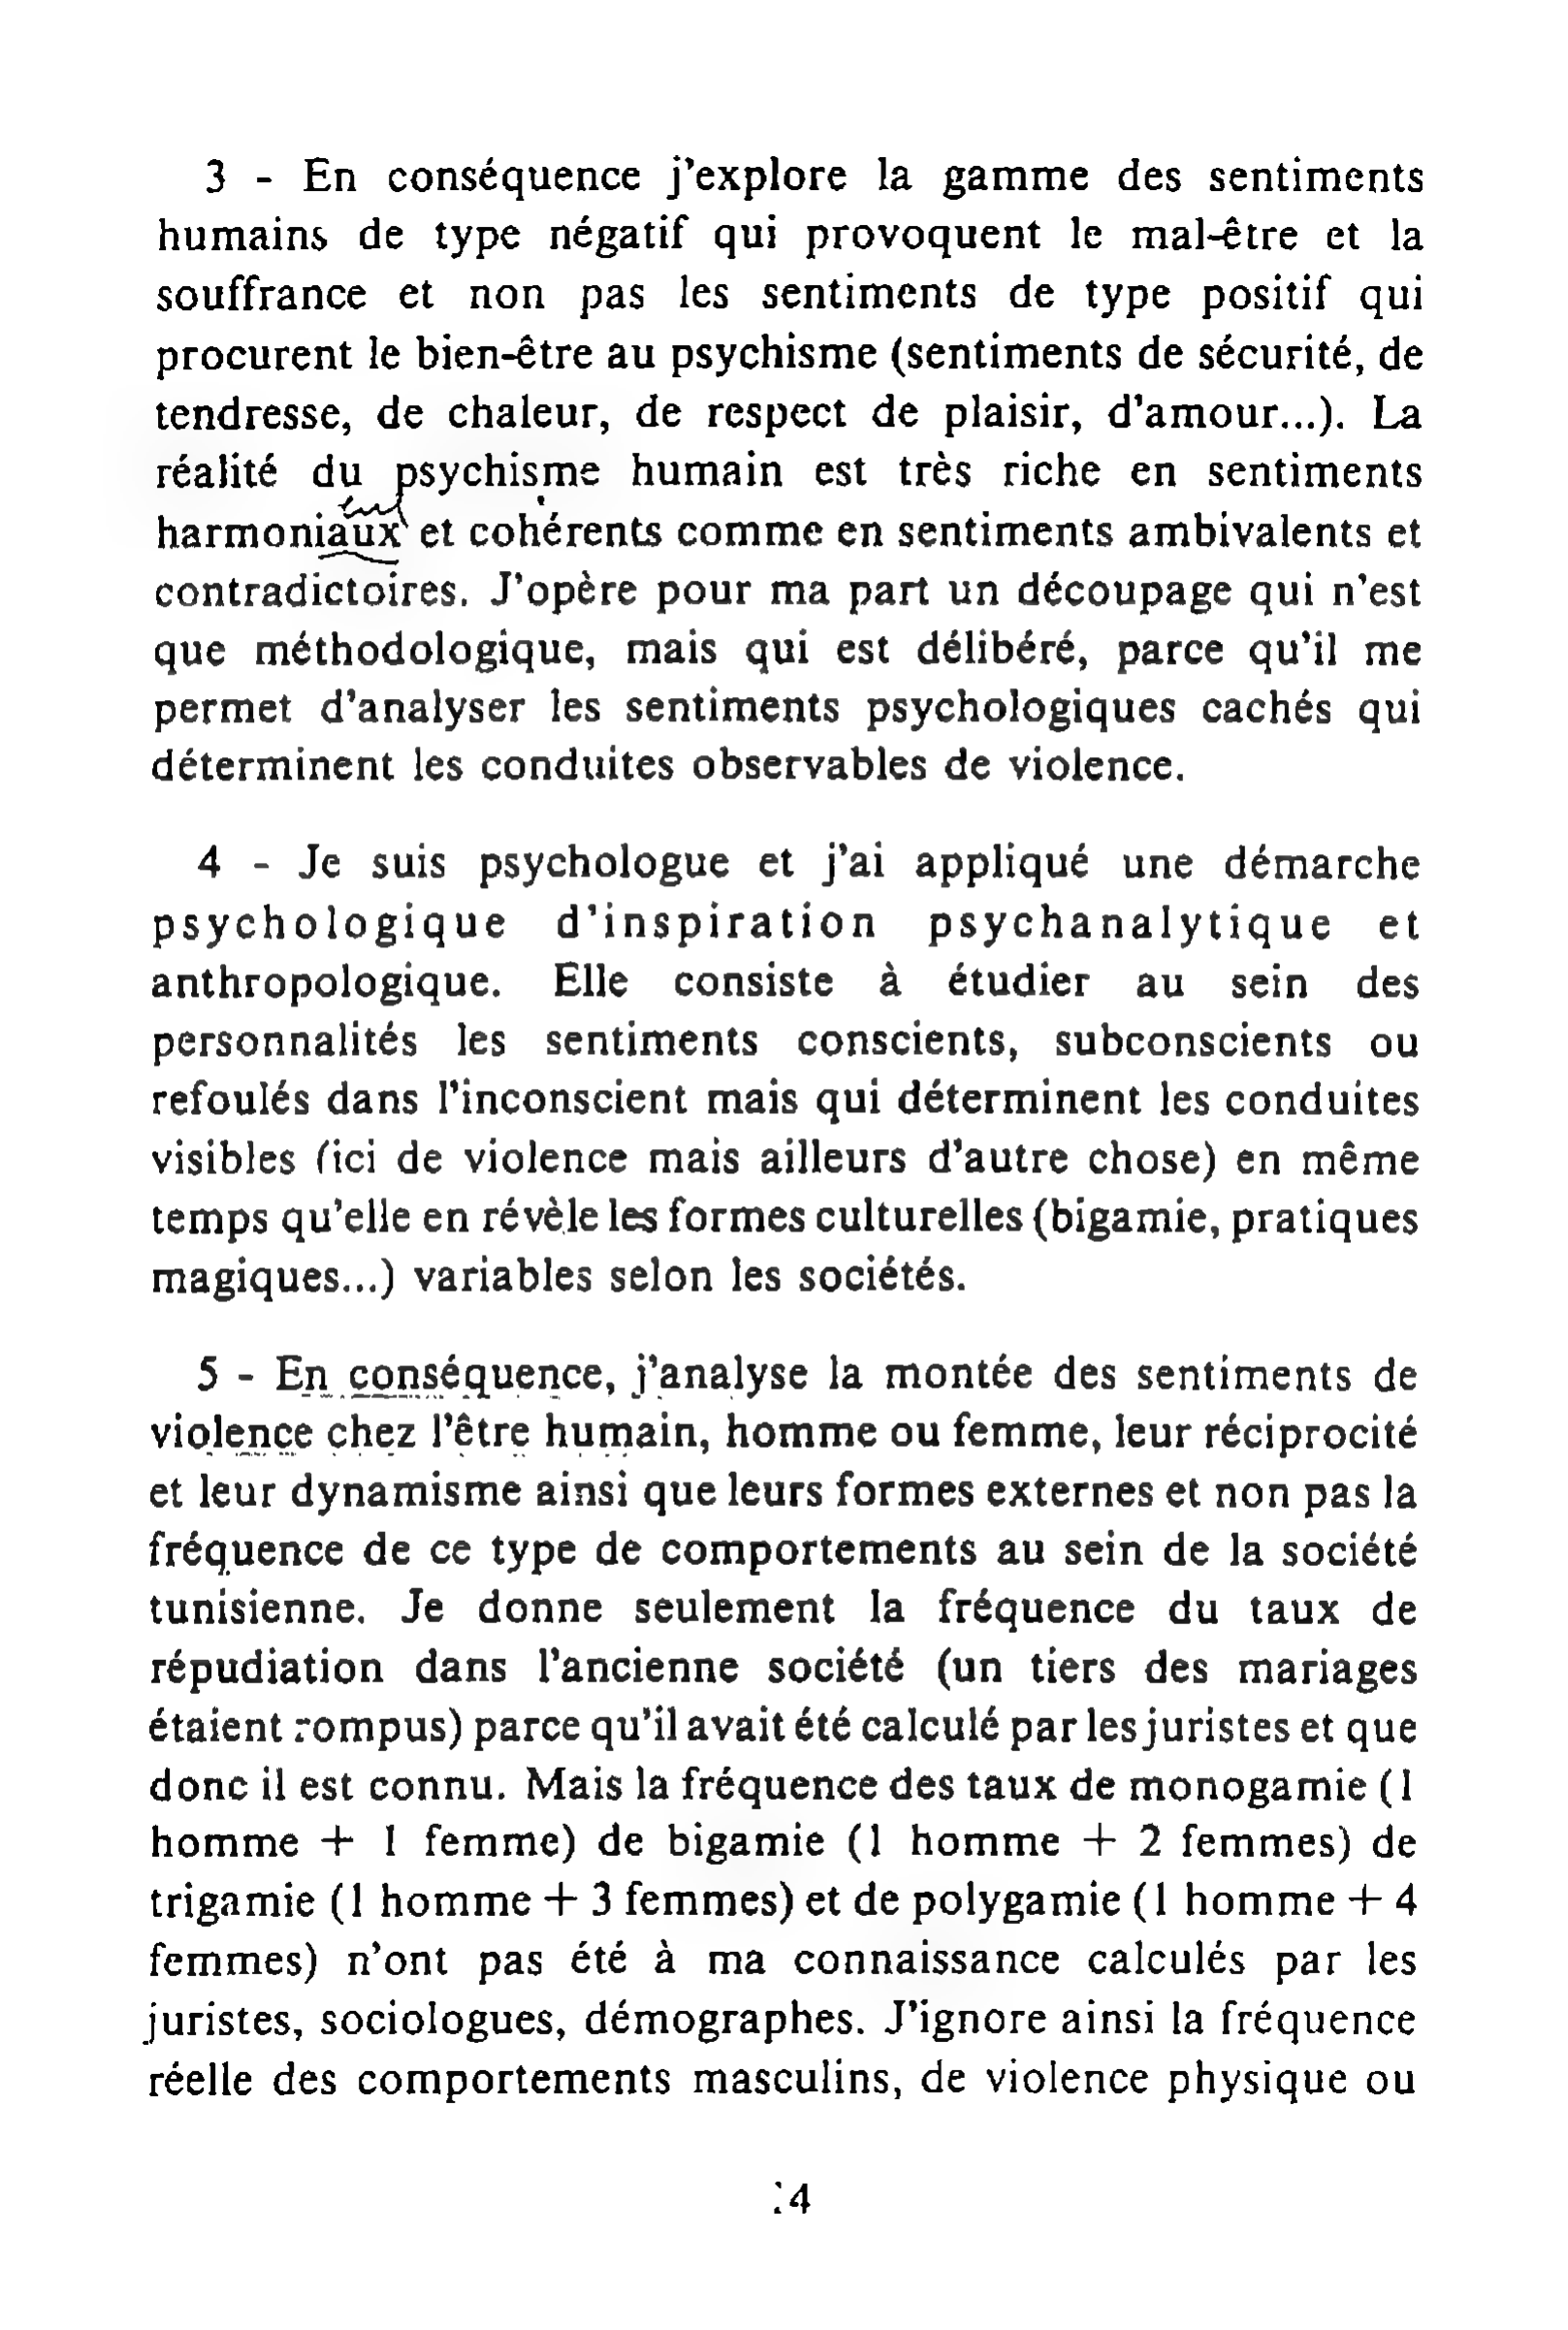 3 - En conséquence j'explore la gamme des sentiments
humains de type négatif qui provoquent le mal-être et la
souffrance et non pas les sentiments de type positif qui
procurent le bien-être au psychisme (sentiments de sécurité, de
tendresse, de chaleur, de respect de plaisir, d'amour...). La
réalité du psychisme humain est très riche en sentiments
harmoniaux et cohérents comme en sentiments ambivalents et
contradictoires. J'opère pour ma part un découpage qui n'est
que méthodologique, mais qui est délibéré, parce qu'il me
permet d'analyser les sentiments psychologiques cachés qui
déterminent les conduites observables de violence.
4 - Je suis psychologue et j'ai appliqué une démarche
psychologique d'inspiration psychanalytique et
anthropologique. Elle consiste à étudier au sein des
personnalités les sentiments conscients, subconscients ou
refoulés dans l'inconscient mais qui déterminent les conduites
visibles (ici de violence mais ailleurs d'autre chose) en même
temps qu'elle en révèle les formes culturelles (bigamie, pratiques
magiques...) variables selon les sociétés.
5 - En conséquence, j'analyse la montée des sentiments de
violence chez l'être humain, homme ou femme, leur réciprocité
et leur dynamisme ainsi que leurs formes externes et non pas la
fréquence de ce type de comportements au sein de la société
tunisienne. Je donne seulement la fréquence du taux de
répudiation dans l'ancienne société (un tiers des mariages
étaient rompus) parce qu'il avait été calculé par les juristes et que
donc il est connu. Mais la fréquence des taux de monogamie (1
homme + 1 femme) de bigamie (1 homme + 2 femmes) de
trigamie (1 homme + 3 femmes) et de polygamie (1 homme + 4
femmes) n'ont pas été à ma connaissance calculés par les
juristes, sociologues, démographes. J'ignore ainsi la fréquence
réelle des comportements masculins, de violence physique ou